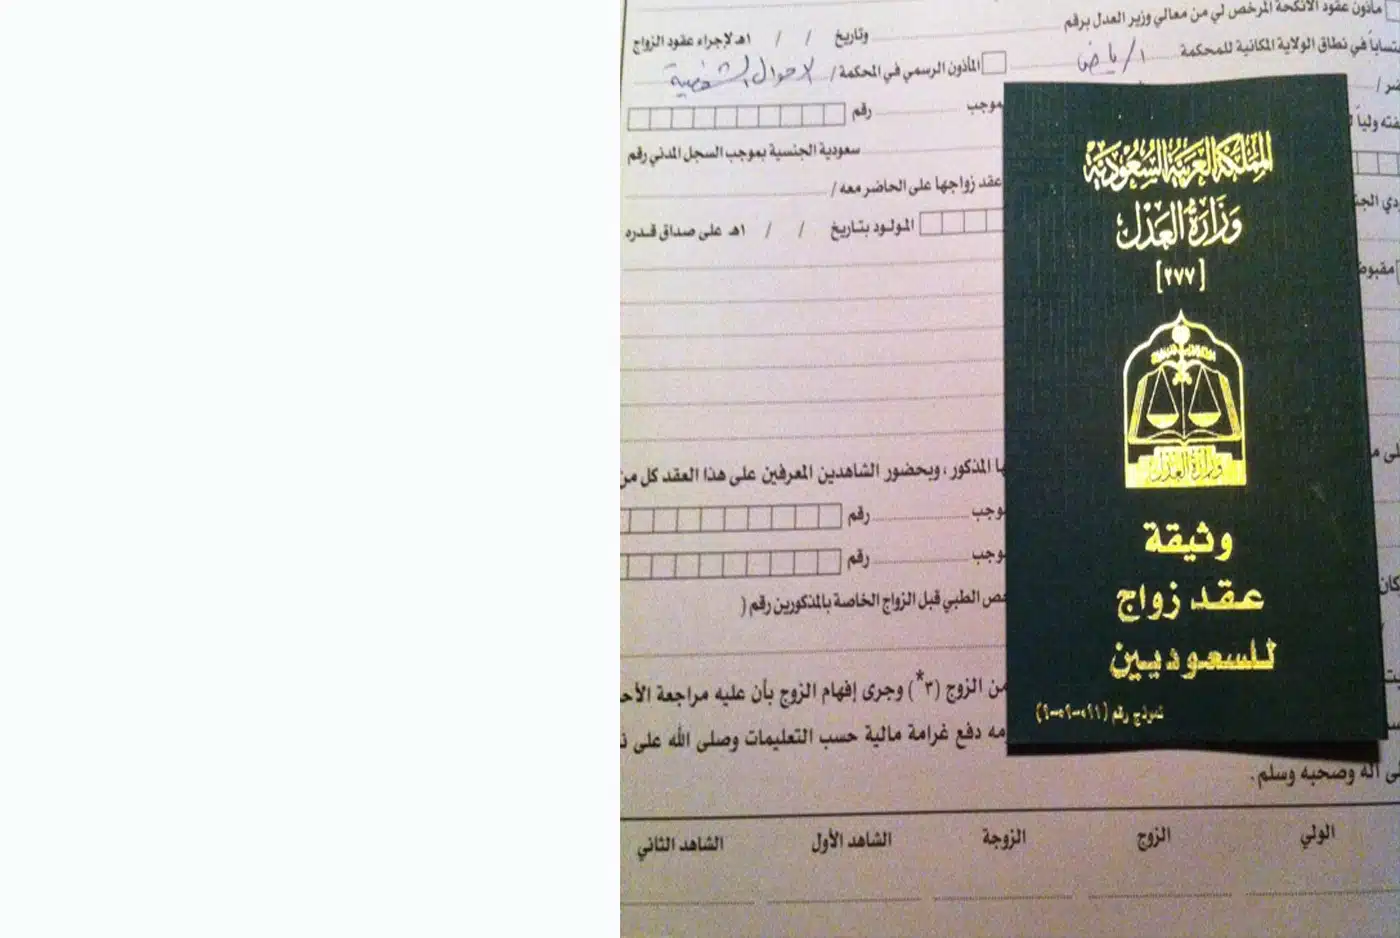 مأذون عقود الأنكحة المرخص لي من معالي وزير العدل برقم وتاريخ / / ١هـ لإجراء عقود الزواج
في نطاق الولاية المكانية للمحكمة الرياض المأذون الرسمي في المحكمة / الاحوال الشخصية
رقم
سعودية الجنسية بموجب السجل المدني رقم
عقد زواجها على الحاضر معه /
المولود بتاريخ / / ١هـ على صداق قدره
المذكور ، وبحضور الشاهدين المعرفين على هذا العقد كل من
رقم
رقم
الطبي قبل الزواج الخاصة بالمذكورين رقم (
من الزوج (٣*) وجرى إفهام الزوج بأن عليه مراجعة
دفع غرامة مالية حسب التعليمات وصلى الله على
آله وصحبه وسلم.
الولي الزوج الزوجة الشاهد الأول الشاهد الثاني
المملكة العربية السعودية
وزارة العدل
[٢٧٧]
وزارة العدل
وثيقة
عقد زواج
للسعوديين